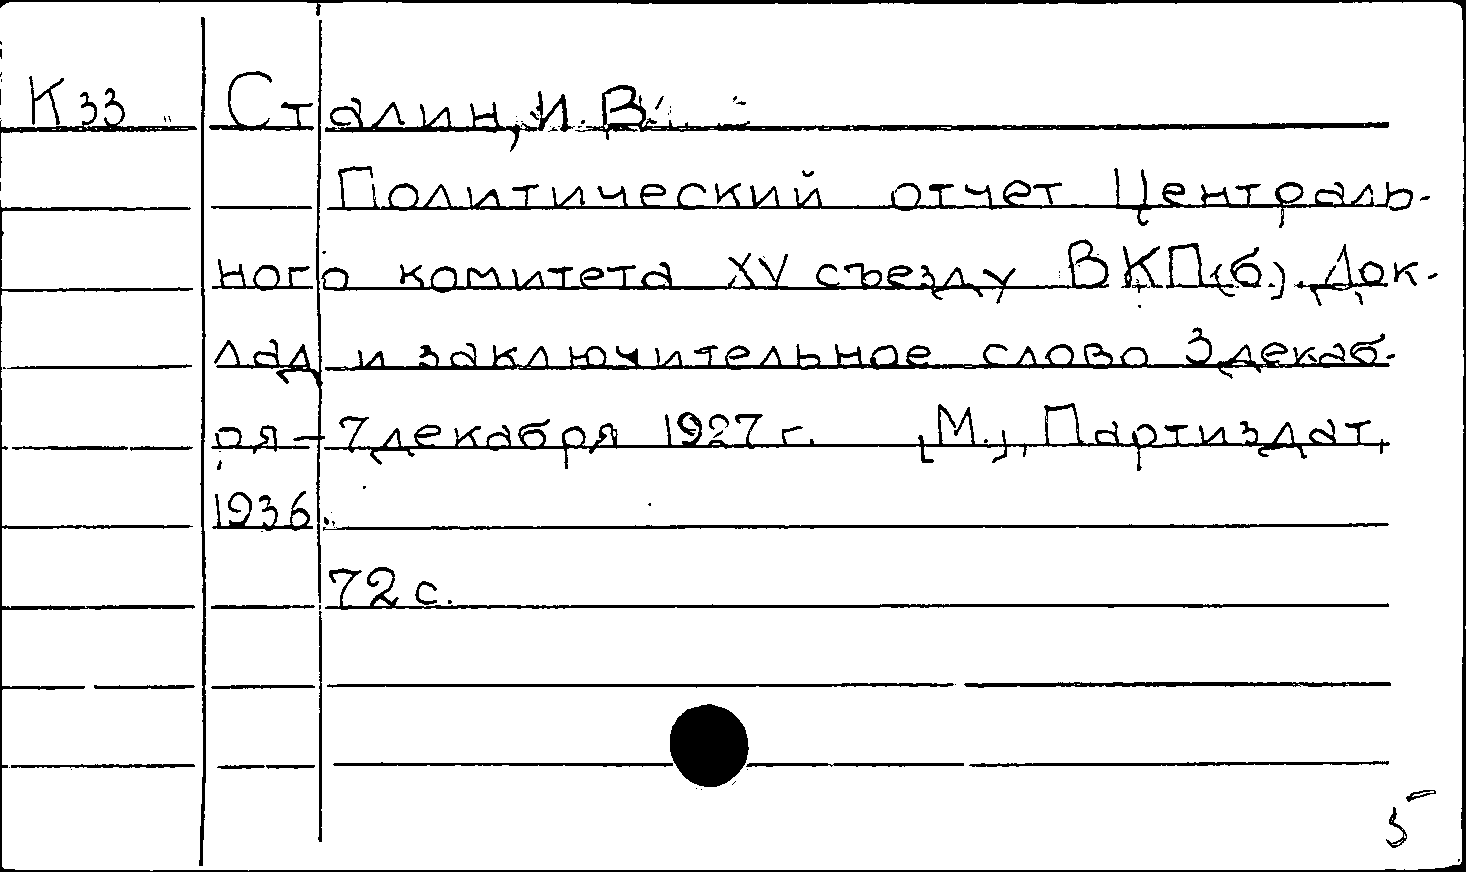 К 33 Сталин, И. В.
Политический отчет Централь-
ного комитета XV съезду ВКП(б). Док-
лад и заключительное слово 3 декаб-
ря - 7 декабря 1927 г. [М.], Партиздат,
1936.
72 с.
5